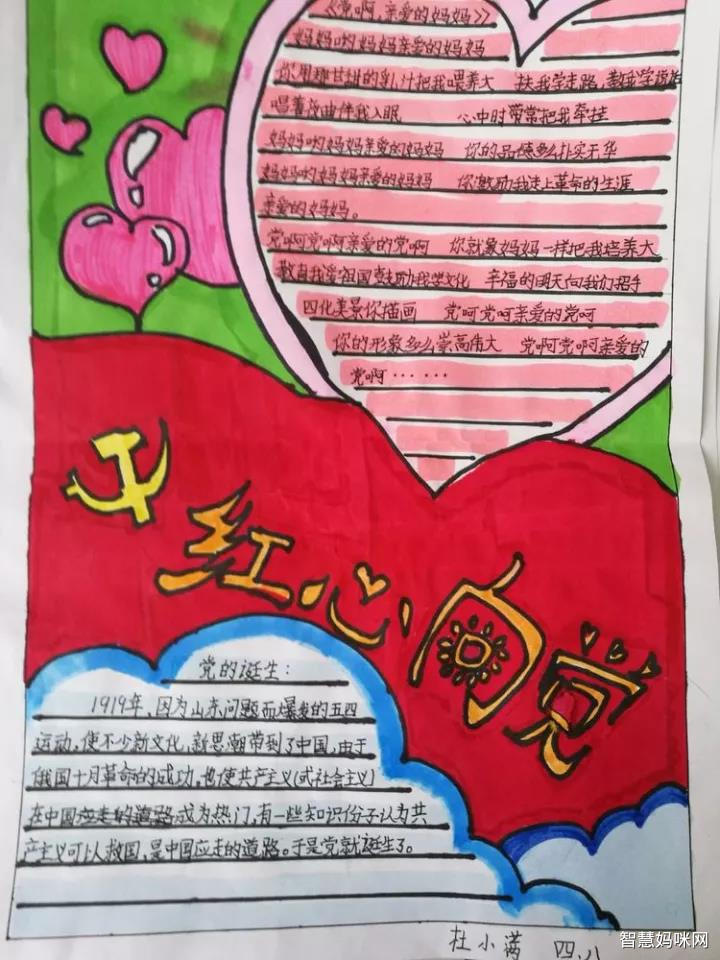 《党啊,亲爱的妈妈》
妈妈哟妈妈亲爱的妈妈
你用那甘甜的乳汁把我喂养大 扶我学走路,教我学说话
唱着夜曲伴我入眠 心中时常常把我牵挂
妈妈哟妈妈亲爱的妈妈 你的品德多么朴实无华
妈妈哟妈妈亲爱的妈妈 你激励我走上革命的生涯
亲爱的妈妈。
党啊党啊亲爱的党啊 你就象妈妈一样把我培养大
教自我爱祖国 鼓励我学文化 幸福的明天向我们招手
四化美景你描画 党呵党呵亲爱的党呵
你的形象多么崇高伟大 党啊党啊亲爱的
党啊……
红心向党
党的诞生:
1919年,因为山东问题而爆发的五四
运动,使不少新文化,新思潮带到了中国,由于
俄国十月革命的成功,也使共产主义(式社会主义)
在中国应走的道路成为热门,有一些知识份子认为共
产主义可以救国,是中国应走的道路。于是党就诞生了。
杜小满 四.八
智慧妈咪网